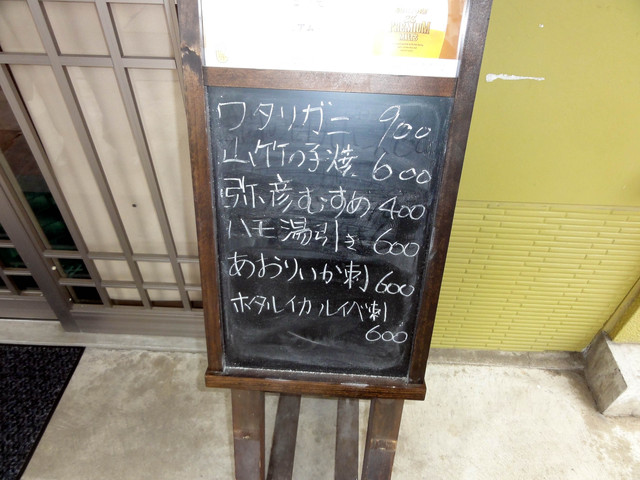 PREMIUM
ワタリガニ 900
山竹の子焼 600
弥彦むすめ 400
ハモ湯引き 600
あおりいか刺 600
ホタルイカルイベ刺
600